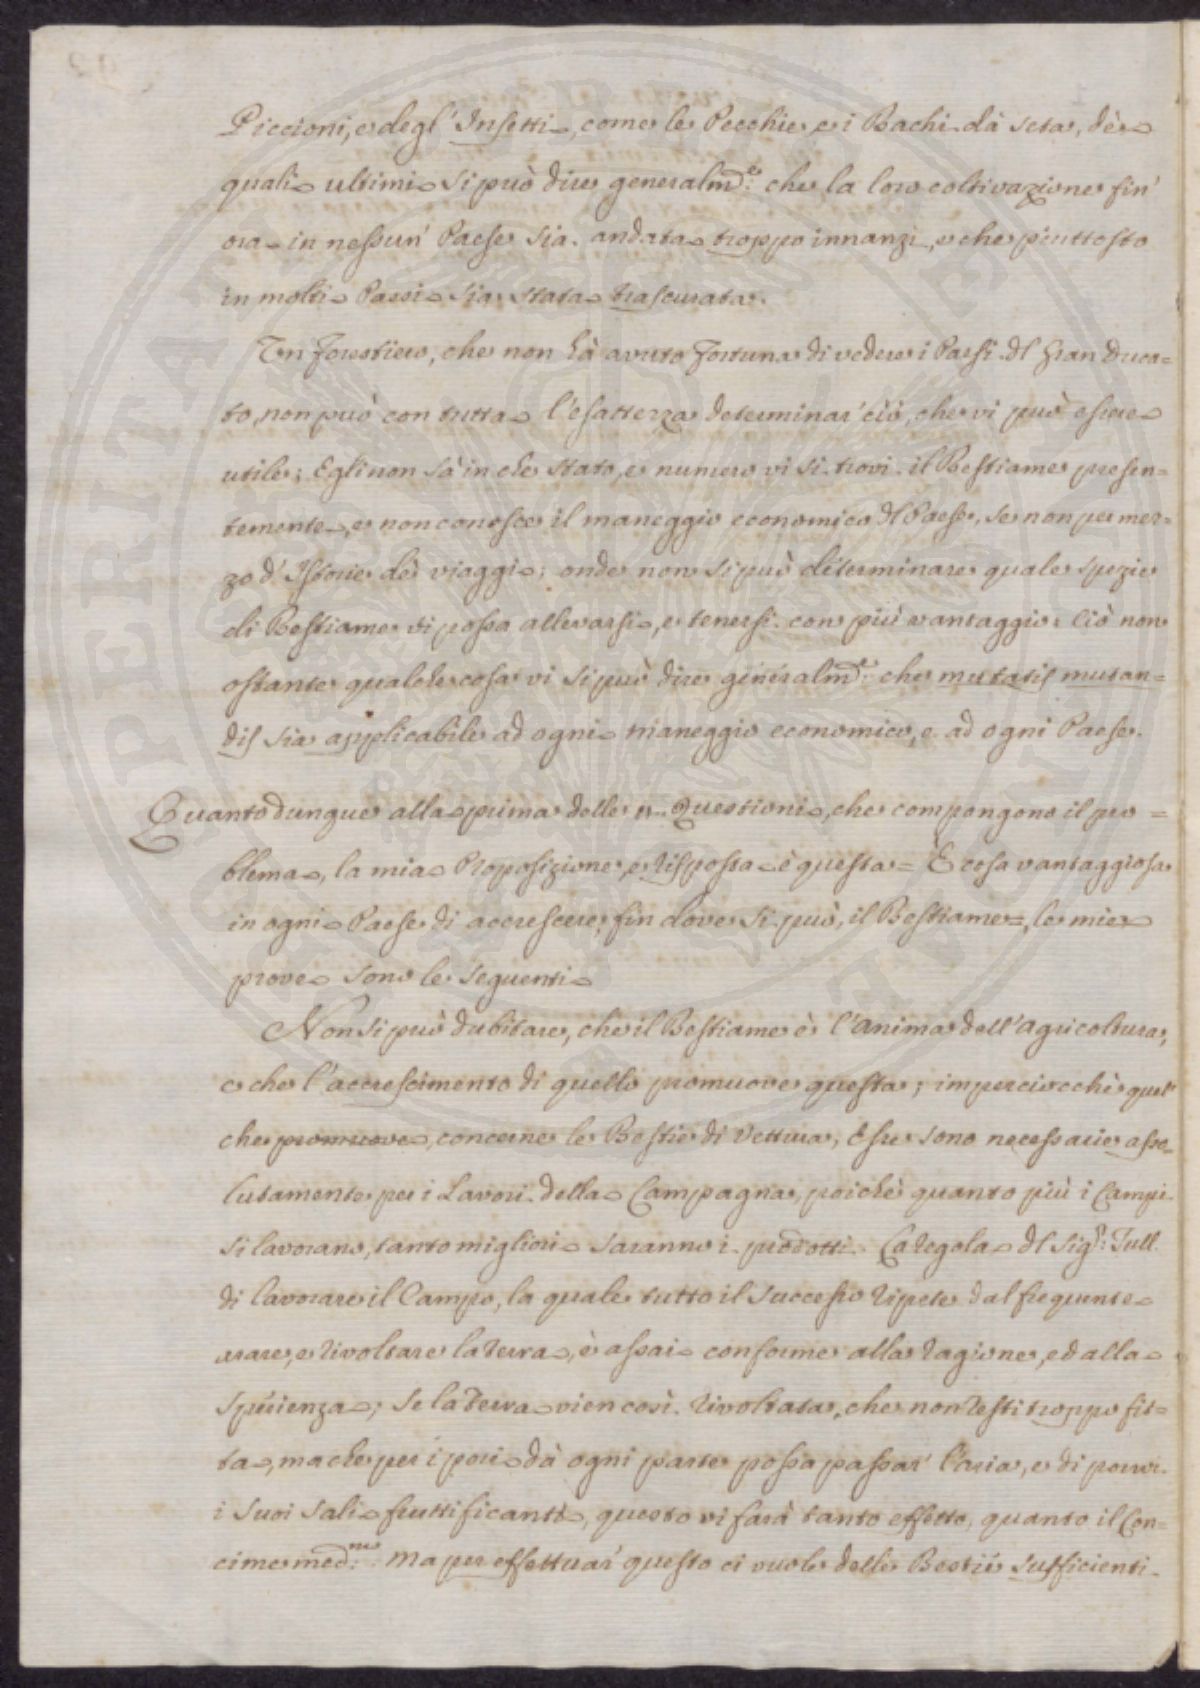 Piccioni, e degl' Insetti, come le Pecchie, e i Bachi dà seta, de
quali ultimi si può dire generalmᵉ: che la loro coltivazione fin'
ora in nessun' Paese sia andata troppo innanzi, e che piuttosto
in molti Paesi sia stata trascurata.
Un Forestiero, che non hà avuto Fortuna di vedere i Paesi dl Gran Duca=
to, non può con tutta l'esattezza determinar' ciò, che vi può essere
utile; Egli non sà in che stato, e numero vi si trovi il Bestiame presen=
temente, e non conosce il maneggio economico dl Paese, se non per mez=
zo d' Istorie dè viaggi; onde non si può determinare quale spezie
di Bestiame vi possa allevarsi, e tenersi con più vantaggio: Ciò non
ostante qualche cosa vi si può dire generalmᵉ: che mutatis mutan=
dis sia applicabile ad ogni maneggio economico, e ad ogni Paese.
Quanto dunque alla prima delle Questioni, che compongono il pro=
blema, la mia Proposizione, e risposta è questa = È cosa vantaggiosa
in ogni Paese di accrescere, fin dove si può, il Bestiame =, le mie
prove sono le seguenti
Non si può dubitare, che il Bestiame è l'anima dell'agricoltura,
e che l'accrescimento di quello promuove questa; imperciocchè quel
che promuove, concerne le Bestie di Vettura; Esse sono necessarie asso=
lutamente per i Lavori della Campagna, poichè quanto più i Campi
si lavorano, tanto migliori saranno i prodotti. La regola dl Sigʳ: Tull
di lavorare il Campo, la quale tutto il successo ripete dal frequente
arare, e rivoltare la terra, è assai conforme alla ragione, ed alla
sperienza; se la Terra vien così rivoltata, che non resti troppo fit=
ta, ma che per i pori dà ogni parte possa passar' l'aria, e di porvi
i suoi sali fruttificanti, questo vi farà tanto effetto, quanto il Con=
cime medᵐᵒ: Ma per effettuar' questo ci vuole delle Bestie sufficienti